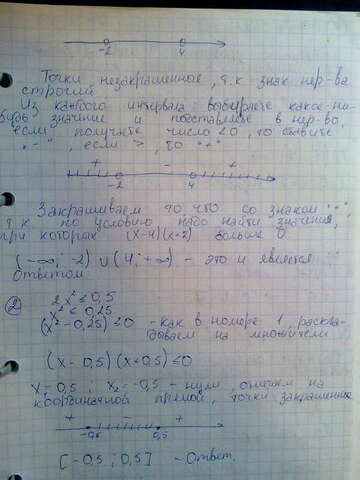 -2 4
Точки незакрашенные, т.к знак нер-ва
строгий
Из каждого интервала выбираете какое-ни-
будь значение и подставляете в нер-во,
если получаете число <0, то ставите
"-", если >, то "+"
+ - +
-2 4
Закрашиваем то что со знаком "+",
т.к по условию надо найти значения,
при которых (x-4)(x+2) больше 0
(-∞; -2) ∪ (4; +∞) - это и является
ответом
② 2x² ≤ 0,5
x² ≤ 0,25
(x² - 0,25) ≤ 0 - как в номере 1, раскла-
дываем на множители
(x - 0,5)(x + 0,5) ≤ 0
x₁ = 0,5; x₂ = -0,5 - нули, отмечаем на
координатной прямой, точки закрашенные
+ - +
-0,5 0,5
[-0,5; 0,5] - Ответ.